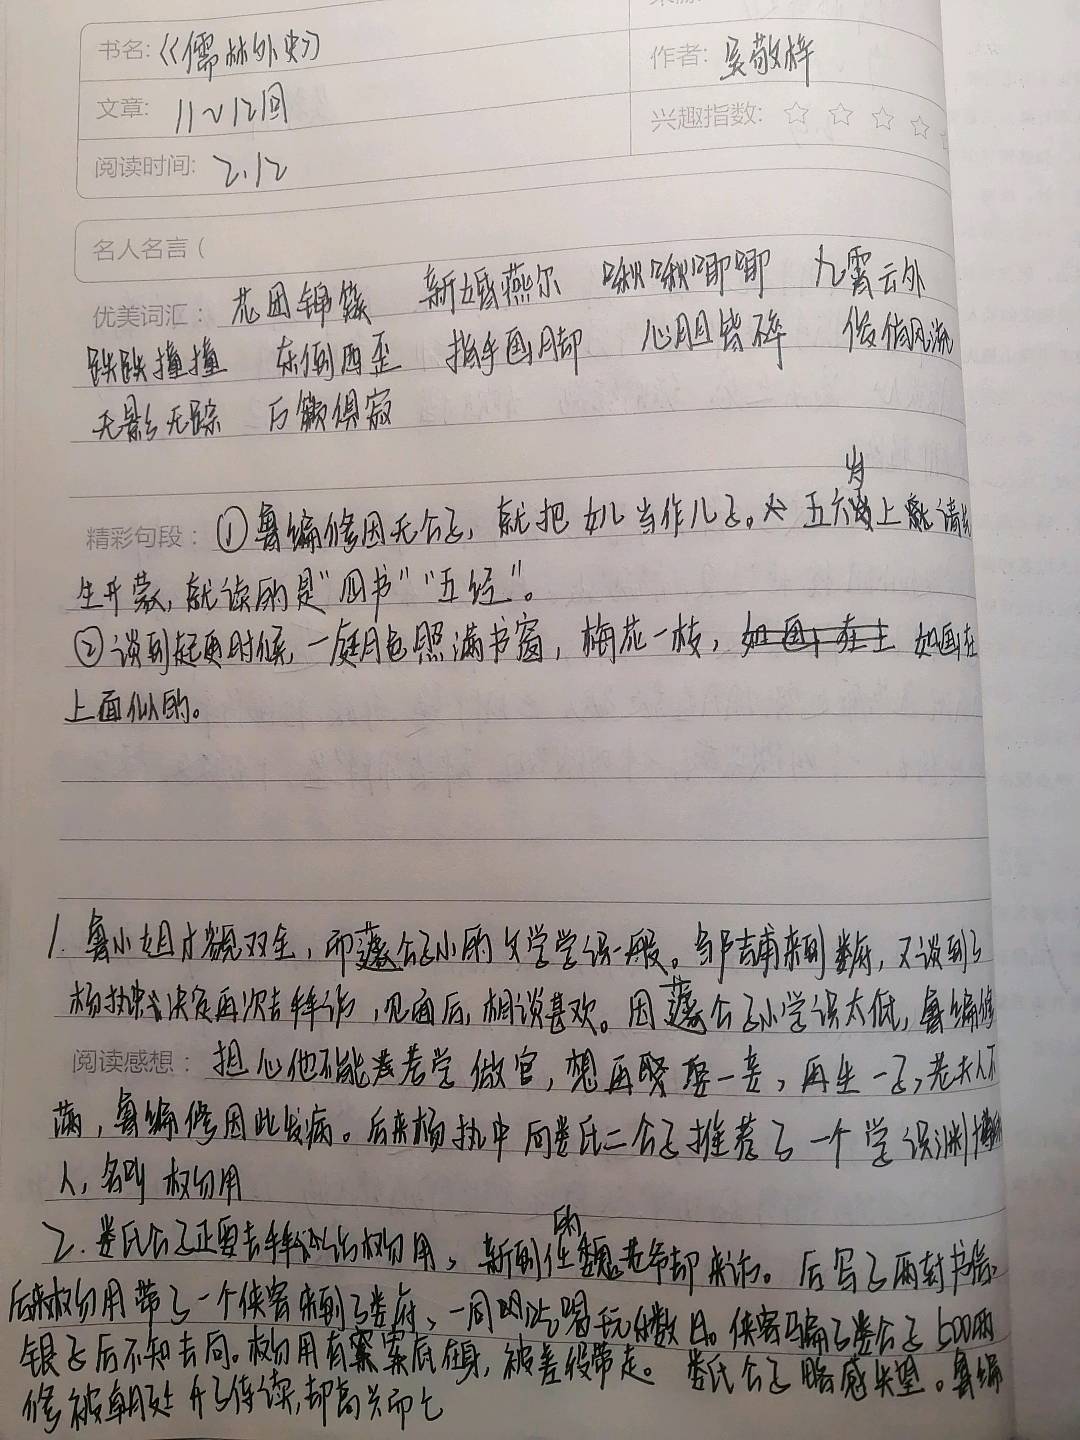 书名:《儒林外史》
作者: 吴敬梓
文章: 11~12回
兴趣指数: ☆ ☆ ☆ ☆
阅读时间: 2.12
名人名言(
优美词汇: 花团锦簇 新婚燕尔 啾啾唧唧 九霄云外
跌跌撞撞 东倒西歪 指手画脚 心胆皆碎 俊俏风流
无影无踪 万籁俱寂
精彩句段: ①鲁编修因无公子,就把女儿当作儿子。五六岁上就请先
生开蒙,就读的是"四书""五经"。
②谈到起更时候,一庭月色照满书窗,梅花一枝,如画在
上面似的。
1.鲁小姐才貌双全,即蘧公子小的文学学识一般。邹吉甫来到娄府,又谈到了
杨执中决定再次去拜访,见面后,相谈甚欢。因蘧公子小学识太低,鲁编修
阅读感想: 担心他不能考学做官,想再娶一妾,再生一子,老夫人不
满,鲁编修因此发病。后来杨执中向娄氏二公子推荐了一个学识渊博的
人,名叫权勿用
2.娄氏公子正要去拜访权勿用,新到任的魏老爷却来访。后写了两封书信。
后来权勿用带了一个侠客来到了娄府,一同吃喝玩乐数日。侠客骗了娄公子500两
银子后不知去向。权勿用有案底在身,被差役带走。娄氏公子略感失望。鲁编
修被朝廷升了侍读,却高兴而亡